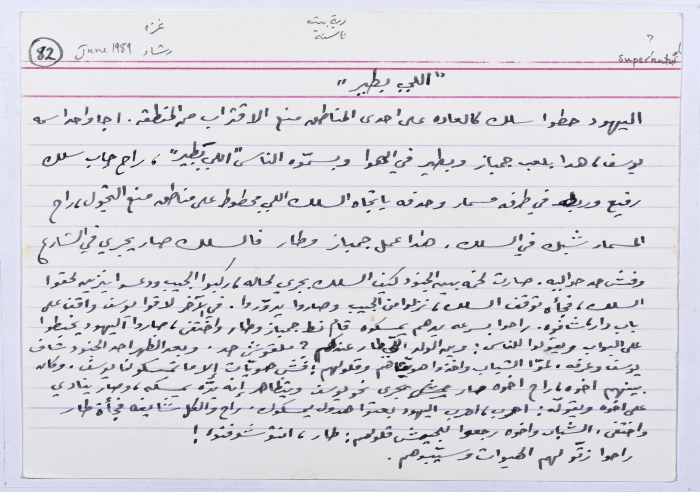 82
June 1989
غزة
رشاد
ربة بيت
؟
supernatural
"اللي بطير"
اليهود حطوا سلك كالعاده على احدى المناطق منع الاقتراب من المنطقه. اجا واحد اسمه
يوسف، هدا بلعب جمباز وبطير في الهوا وبسموه الناس "اللي بطير"، راح جاب سلك
رفيع وربط في طرفه مسمار وحدفه باتجاه السلك اللي محطوط على مناطق منع التجول، راح
المسمار شبك في السلك. هذا عمل جمباز وطار فالسلك صار يجري في الشارع
وفش حد حواليه. صارت لخمه بين الجنود كيف السلك بجري لحاله، ركبوا الجيب ودعسوا بنزين لحقوا
السلك، فجأه توقف السلك، نزلوا من الجيب وصاروا يدوروا. في الآخر لاقوا يوسف واقف على
باب دار. راحوا بسرعه بدهم يمسكوه قام نط جمباز وطار واختفى، صاروا اليهود يخبطوا
على البواب ويقولوا للناس: وين الولد اللي طار عندهم؟ ملقوش حد. وبعد الظهر احد الجنود شاف
يوسف وعرفه. لموا الشباب واخدوا هوياتهم وقالولهم: فش هويات إلا ما تمسكولنا يوسف. وكان
بينهم اخوه، راح اخوه صار يجري نحو يوسف ويتظاهر إنه بده يمسكه، وصار ينادي
على اخوه ويقوله: اهرب، اهرب اليهود بعتوا هدول يمسكوك. راح والكل شايفه فجأة طار
واختفى. الشباب واخوه رجعوا للجيش قالولهم: طار، انتو شوفتوا!
راحوا زتولهم الهويات وسيبوهم.